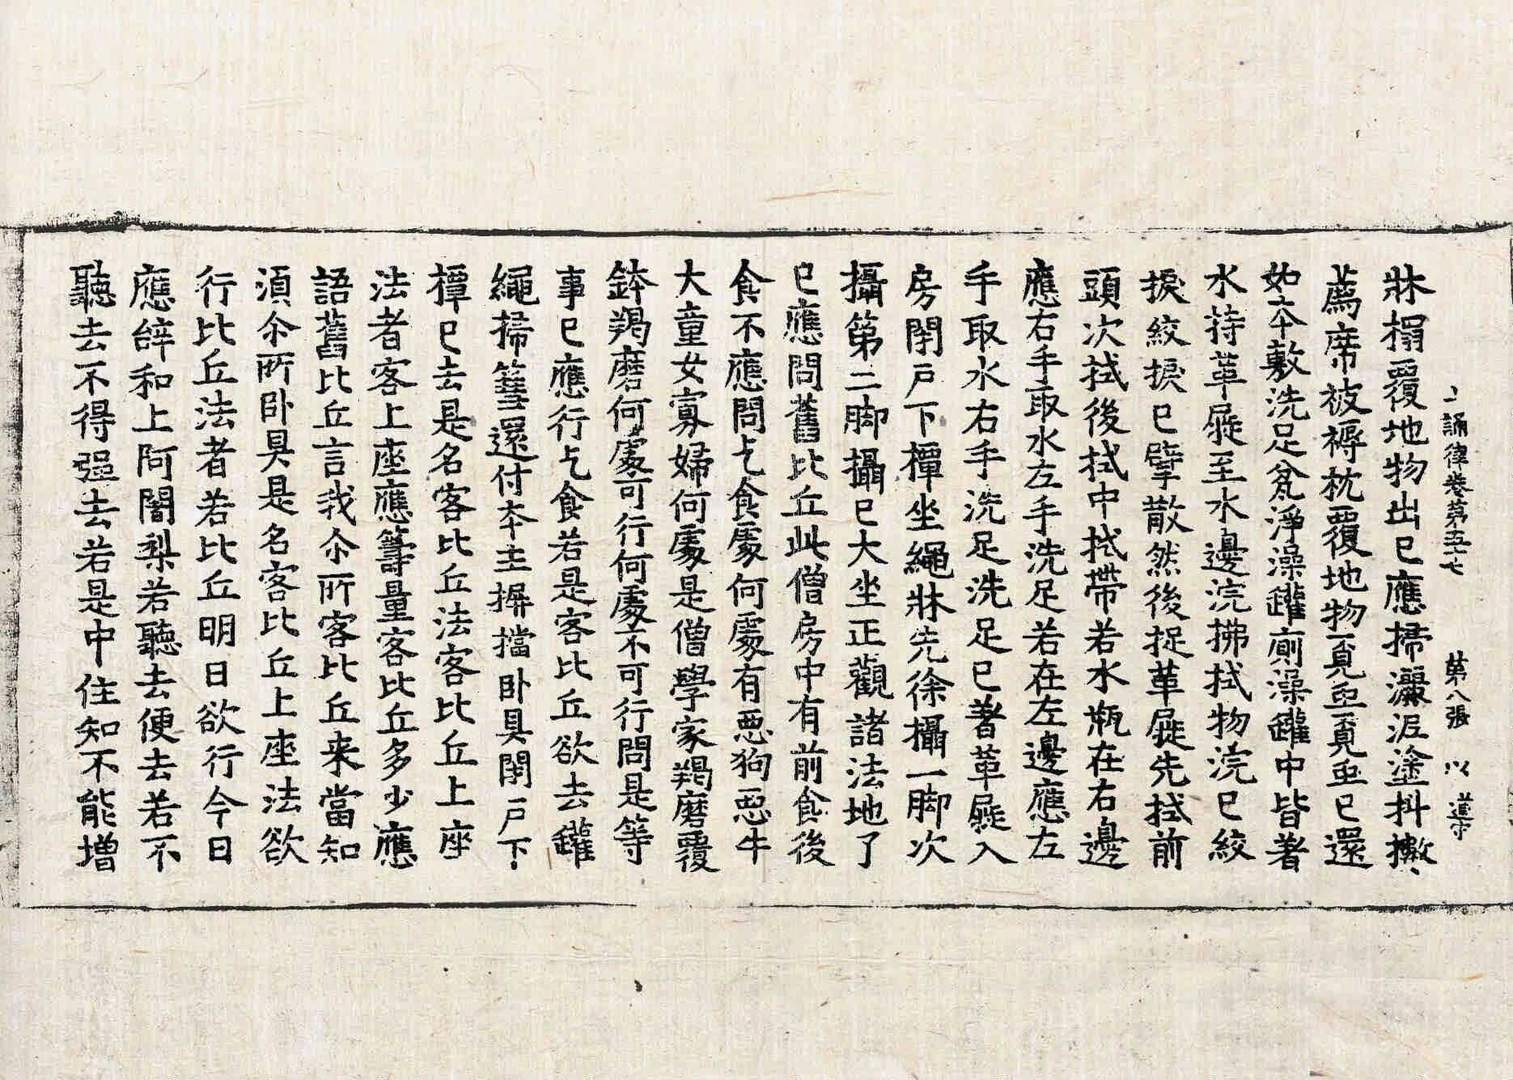 十誦律卷第五十七　第八張　以　導
牀榻覆地物出已應掃灑泥塗抖擻
薦席被褥枕覆地物覔蝨覔蝨已還
如夲敷洗足瓮淨澡罐廁澡罐中皆著
水持革屣至水邊浣拂拭物浣已絞
捩絞捩已擘散然後捉革屣先拭前
頭次拭後拭中拭帶若水瓶在右邊
應右手取水左手洗足若在左邊應左
手取水右手洗足洗足已著革屣入
房閉戸下橝坐繩牀先徐攝一脚次
攝第二脚攝已大坐正觀諸法地了
已應問舊比丘此僧房中有前食後
食不應問乞食處何處有惡狗惡牛
大童女寡婦何處是僧學家羯磨覆
鉢羯磨何處可行何處不可行問是等
事已應行乞食若是客比丘欲去罐
繩掃篲還付夲主摒擋卧具閉戸下
橝已去是名客比丘法客比丘上座
法者客上座應籌量客比丘多少應
語舊比丘言我尒所客比丘来當知
湏尒所卧具是名客比丘上座法欲
行比丘法者若比丘明日欲行今日
應辝和上阿闍梨若聽去便去若不
聽去不得强去若是中住知不能增